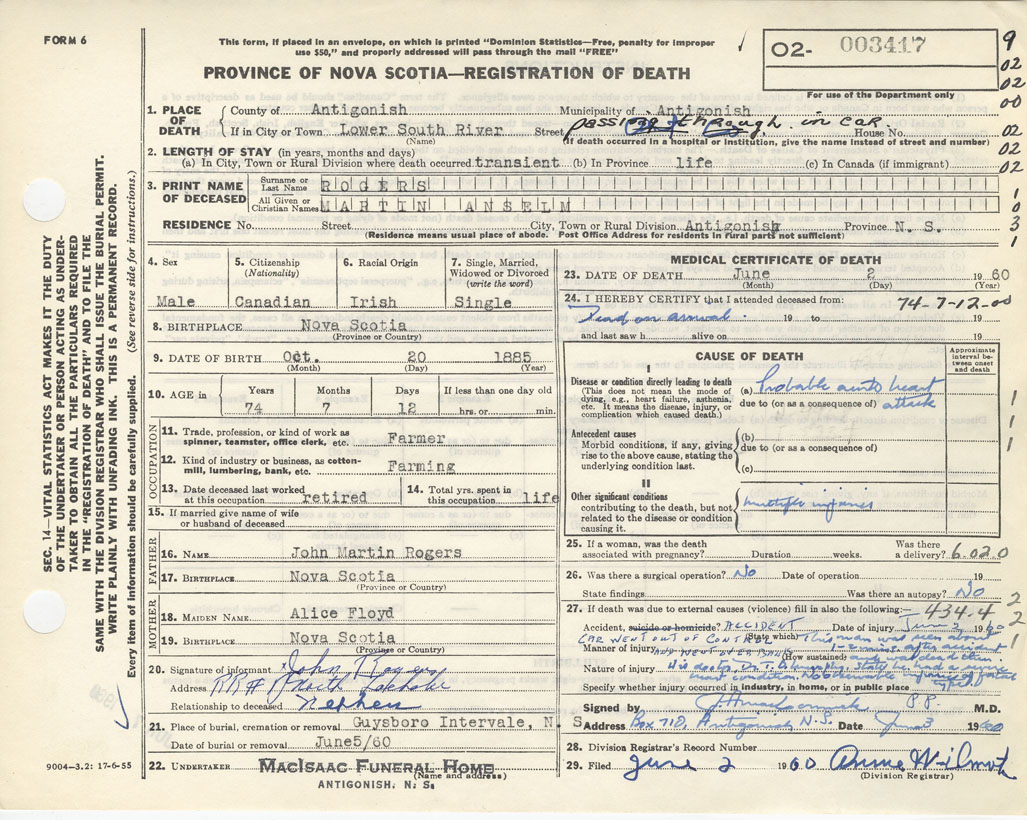 FORM 6
This form, if placed in an envelope, on which is printed "Dominion Statistics—Free, penalty for improper
use $50," and properly addressed will pass through the mail "FREE"
PROVINCE OF NOVA SCOTIA—REGISTRATION OF DEATH
02- 003417
For use of the Department only
9
02
02
00
02
02
02
1
0
3
1
1. PLACE OF DEATH
County of Antigonish Municipality of Antigonish
If in City or Town Lower South River Street passing through in car. House No.
(Name) (If death occurred in a hospital or institution, give the name instead of street and number)
2. LENGTH OF STAY (in years, months and days)
(a) In City, Town or Rural Division where death occurred transient (b) In Province life (c) In Canada (if immigrant)
3. PRINT NAME OF DECEASED
Surname or Last Name ROGERS
All Given or Christian Names MARTIN ANSELM
RESIDENCE No. Street City, Town or Rural Division Antigonish Province N. S.
(Residence means usual place of abode. Post Office Address for residents in rural parts not sufficient)
4. Sex
Male
5. Citizenship
(Nationality)
Canadian
6. Racial Origin
Irish
7. Single, Married,
Widowed or Divorced
(write the word)
Single
8. BIRTHPLACE Nova Scotia
(Province or Country)
9. DATE OF BIRTH Oct. 20 1885
(Month) (Day) (Year)
10. AGE in
Years Months Days If less than one day old
74 7 12 hrs. or min.
OCCUPATION
11. Trade, profession, or kind of work as
spinner, teamster, office clerk, etc. Farmer
12. Kind of industry or business, as cotton-
mill, lumbering, bank, etc. Farming
13. Date deceased last worked
at this occupation retired
14. Total yrs. spent in
this occupation life
15. If married give name of wife
or husband of deceased
FATHER
16. NAME John Martin Rogers
17. BIRTHPLACE Nova Scotia
(Province or Country)
MOTHER
18. MAIDEN NAME Alice Floyd
19. BIRTHPLACE Nova Scotia
(Province or Country)
20. Signature of informant John T Rogers
Address RR # 1 North
Relationship to deceased Nephew
21. Place of burial, cremation or removal Guysboro Intervale, N. S
Date of burial or removal June5/60
22. UNDERTAKER MACISAAC FUNERAL HOME
(Name and address)
ANTIGONISH, N. S.
MEDICAL CERTIFICATE OF DEATH
23. DATE OF DEATH June 2 1960
(Month) (Day) (Year)
24. I HEREBY CERTIFY that I attended deceased from: 74-7-12-00
Dead on arrival. 19 to 19
and last saw h alive on 19
CAUSE OF DEATH
Approximate
interval be-
tween onset
and death
I
Disease or condition directly leading to death
(This does not mean the mode of
dying, e.g., heart failure, asthenia,
etc. It means the disease, injury, or
complication which caused death.)
(a) Probable acute heart
due to (or as a consequence of) attack
Antecedent causes
Morbid conditions, if any, giving
rise to the above cause, stating the
underlying condition last.
(b)
due to (or as a consequence of)
(c)
II
Other significant conditions
contributing to the death, but not
related to the disease or condition
causing it.
multiple injuries
1
1
1
1
25. If a woman, was the death
associated with pregnancy? Duration weeks.
Was there
a delivery? 6.020
26. Was there a surgical operation? No Date of operation 19
State findings Was there an autopsy? No
27. If death was due to external causes (violence) fill in also the following:— 434.4
Accident, suicide or homicide? ACCIDENT Date of injury June 2 1960
(State which)
CAR WENT OUT OF CONTROL This man was seen about
Manner of injury AND WENT OVER BANK
(How sustained)
Nature of injury His doctor, Dr. T.
Specify whether injury occurred in industry, in home, or in public place
2
2
1
Signed by M.D.
Address Box 710, Antigonish N.S. Date June 3 1960
28. Division Registrar's Record Number
29. Filed June 2 1960 Anne Wilmot
(Division Registrar)
SEC. 14—VITAL STATISTICS ACT MAKES IT THE DUTY
OF THE UNDERTAKER OR PERSON ACTING AS UNDER-
TAKER TO OBTAIN ALL THE PARTICULARS REQUIRED
IN THE "REGISTRATION OF DEATH" AND TO FILE THE
SAME WITH THE DIVISION REGISTRAR WHO SHALL ISSUE THE BURIAL PERMIT.
WRITE PLAINLY WITH UNFADING INK. THIS IS A PERMANENT RECORD.
Every item of information should be carefully supplied. (See reverse side for instructions.)
9004-3.2: 17-6-55